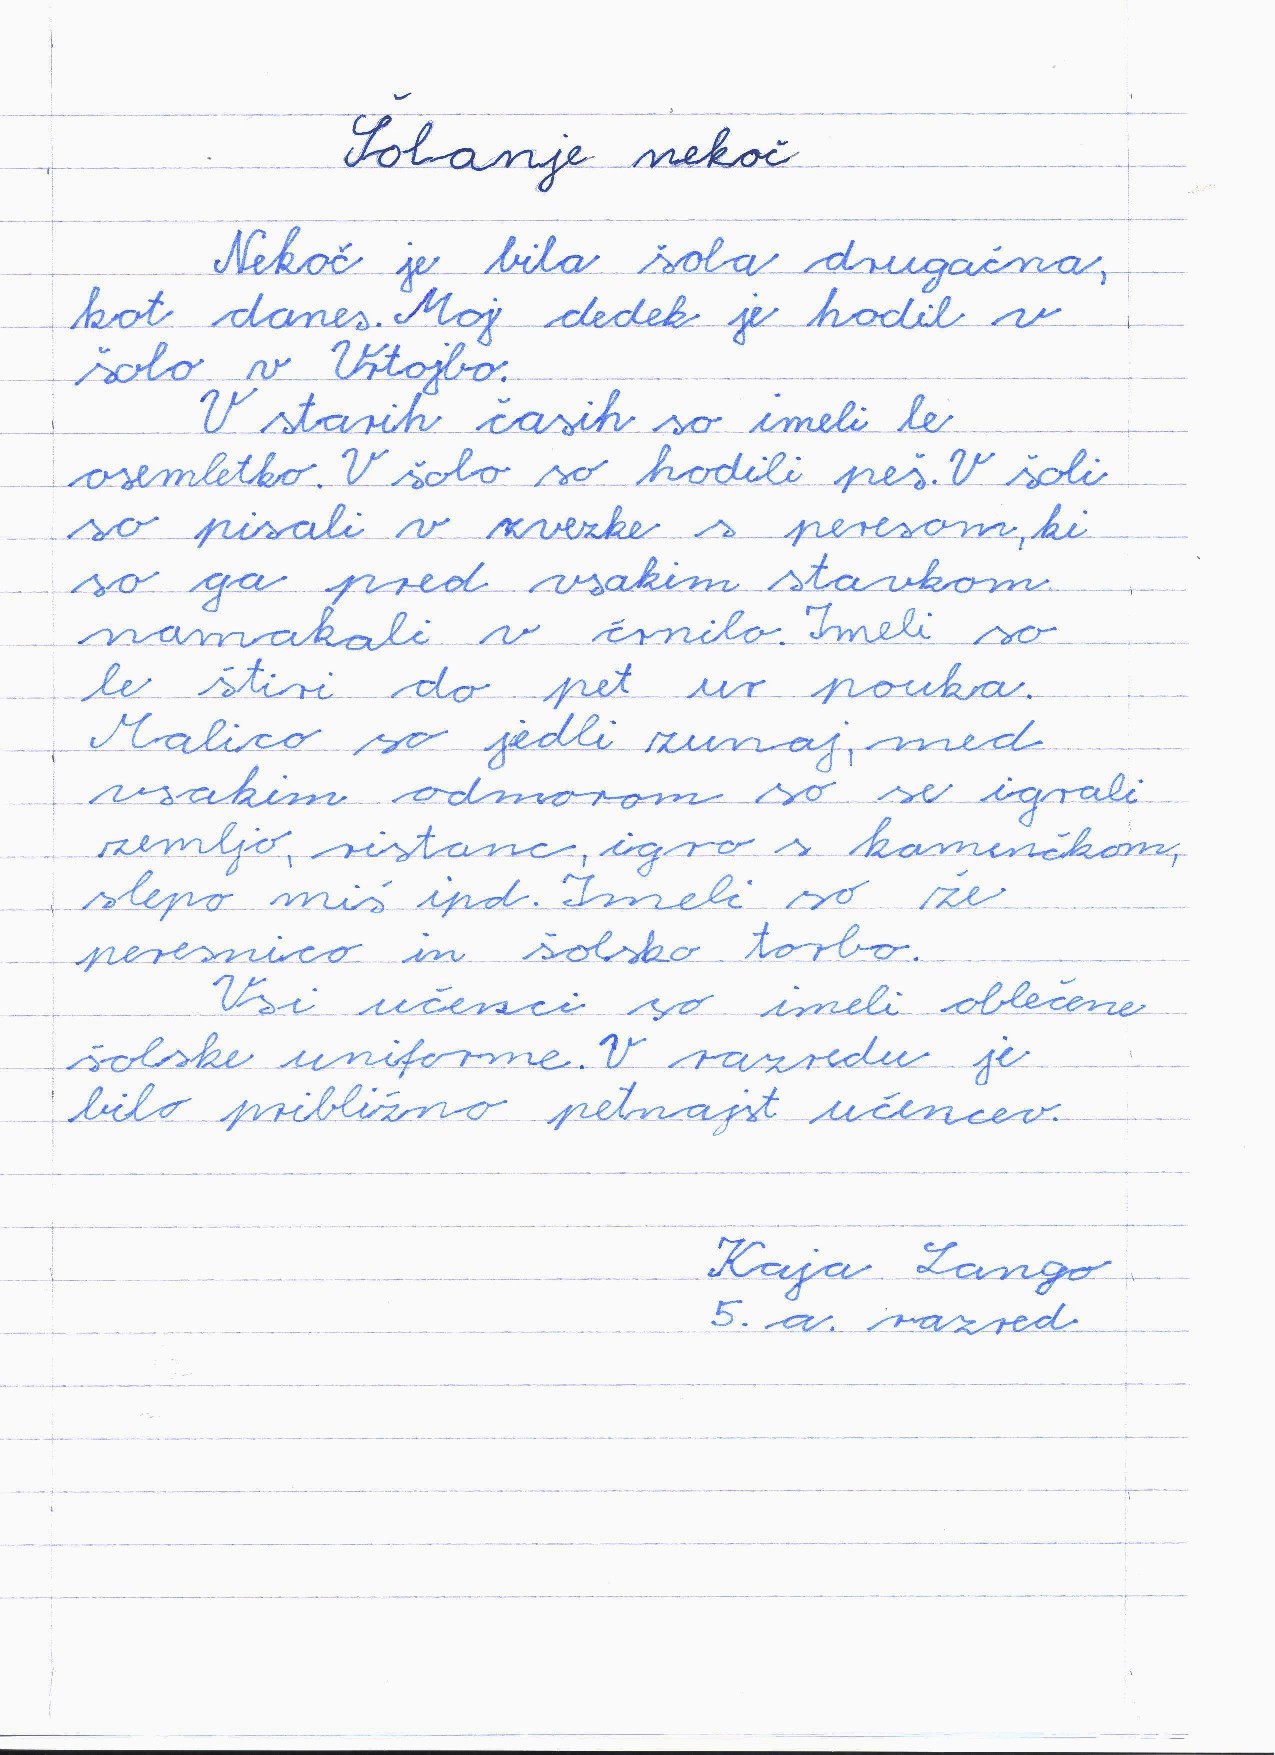 Šolanje nekoč
Nekoč je bila šola drugačna,
kot danes. Moj dedek je hodil v
šolo v Vrtojbo.
V starih časih so imeli le
osemletko. V šolo so hodili peš. V šoli
so pisali v zvezke s peresom, ki
so ga pred vsakim stavkom
namakali v črnilo. Imeli so
le štiri do pet ur pouka.
Malico so jedli zunaj, med
vsakim odmorom so se igrali
zemljo, ristanc, igro s kamenčkom,
slepo miš ipd. Imeli so že
peresnico in šolsko torbo.
Vsi učenci so imeli oblečene
šolske uniforme. V razredu je
bilo približno petnajst učencev.
Kaja Lango
5. a. razred